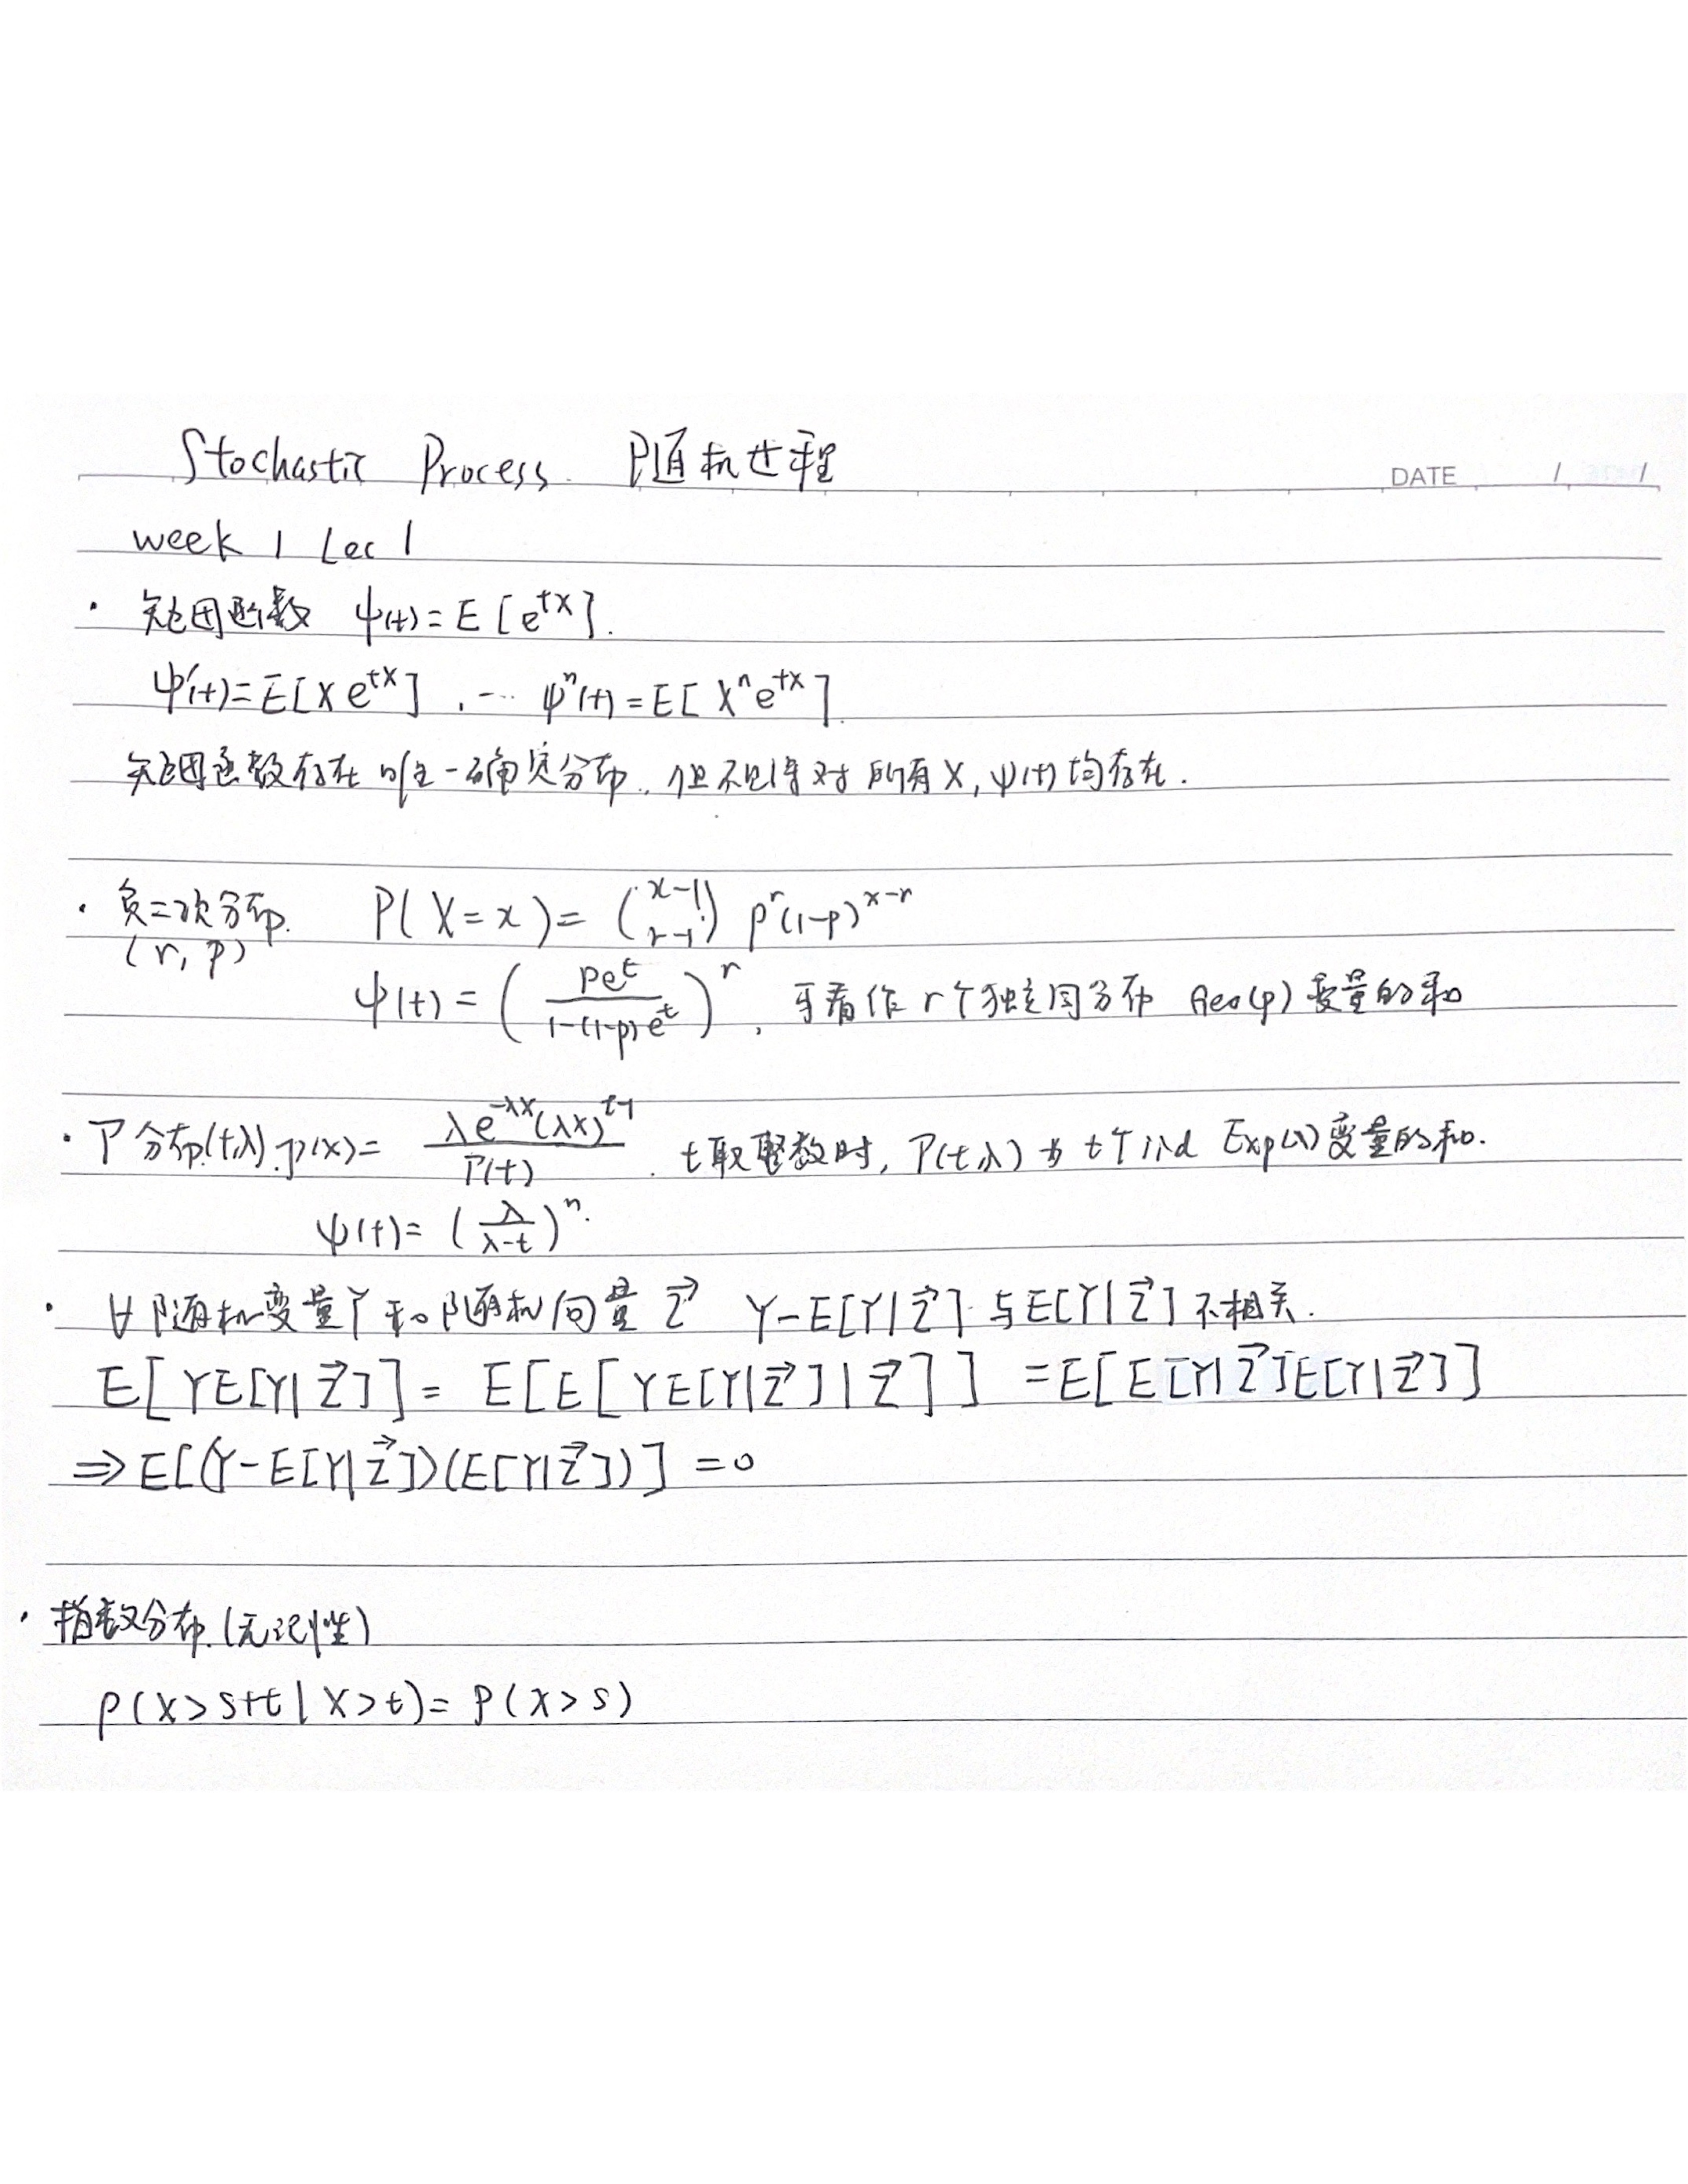 Stochastic Process 随机过程
DATE / /
week 1 Lec 1
· 矩母函数 ψ(t)=E[e^{tX}].
ψ'(t)=E[Xe^{tX}], … ψ^n(t)=E[X^n e^{tX}].
矩母函数存在时唯一确定分布. 但不见得对所有X, ψ(t)均存在.
· 负二项分布. P(X=x)= \binom{x-1}{r-1} p^r(1-p)^{x-r}
(r, p)
ψ(t) = (\frac{pe^t}{1-(1-p)e^t})^r, 可看作r个独立同分布 Geo(p) 变量的和
· Γ分布(t,λ). p(x)= \frac{λe^{-λx}(λx)^{t-1}}{Γ(t)}. t取整数时, Γ(t,λ)为t个iid Exp(λ)变量的和.
ψ(t)= (\frac{λ}{λ-t})^n.
· ∀随机变量Y和随机向量\vec{Z} Y-E[Y|\vec{Z}]与E[Y|\vec{Z}]不相关.
E[YE[Y|\vec{Z}]] = E[E[YE[Y|\vec{Z}]|\vec{Z}]] = E[E[Y|\vec{Z}]E[Y|\vec{Z}]]
⇒ E[(Y-E[Y|\vec{Z}])(E[Y|\vec{Z}])] = 0
· 指数分布.(无记忆性)
P(X>s+t|X>t)= P(X>s)